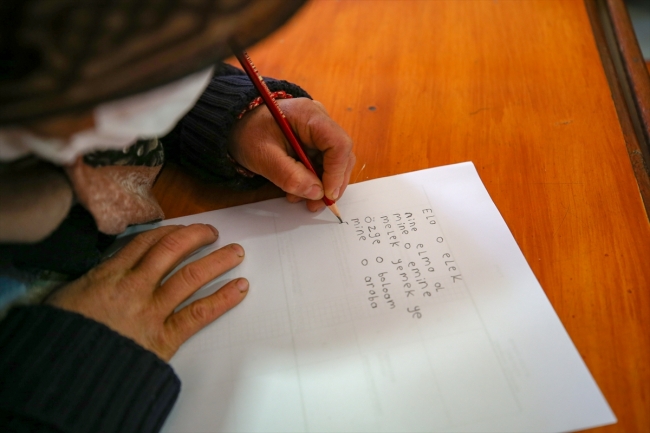 Ela o elek
nine elma al
mine o emine
melek yemek ye
özge o baloam
mine o araba